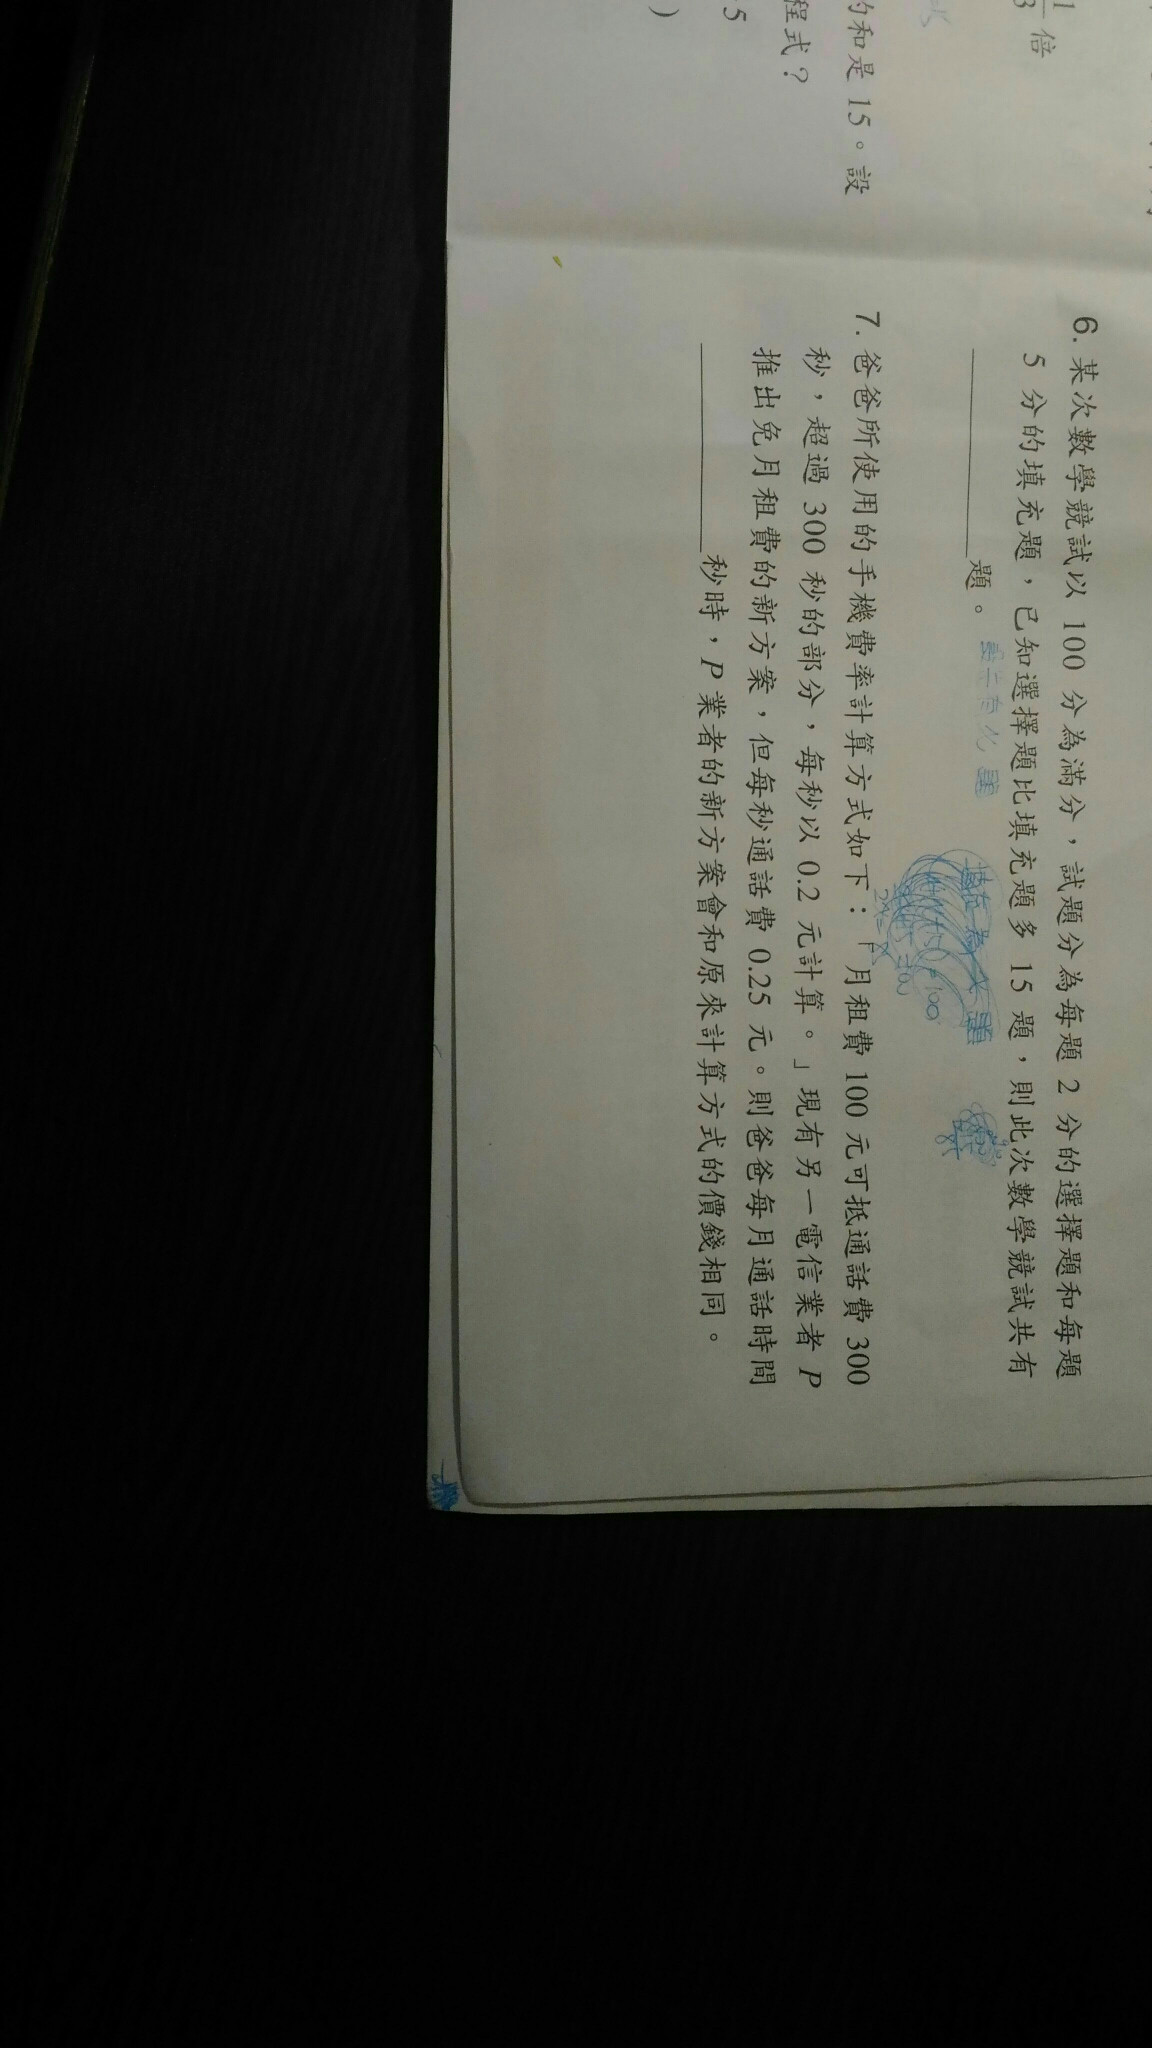 1
3 倍
的和是 15。設
程式？
5
)
6. 某次數學競試以 100 分為滿分，試題分為每題 2 分的選擇題和每題
5 分的填充題，已知選擇題比填充題多 15 題，則此次數學競試共有
題。
7. 爸爸所使用的手機費率計算方式如下：「月租費 100 元可抵通話費 300
秒，超過 300 秒的部分，每秒以 0.2 元計算。」現有另一電信業者 P
推出免月租費的新方案，但每秒通話費 0.25 元。則爸爸每月通話時間
秒時，P 業者的新方案會和原來計算方式的價錢相同。